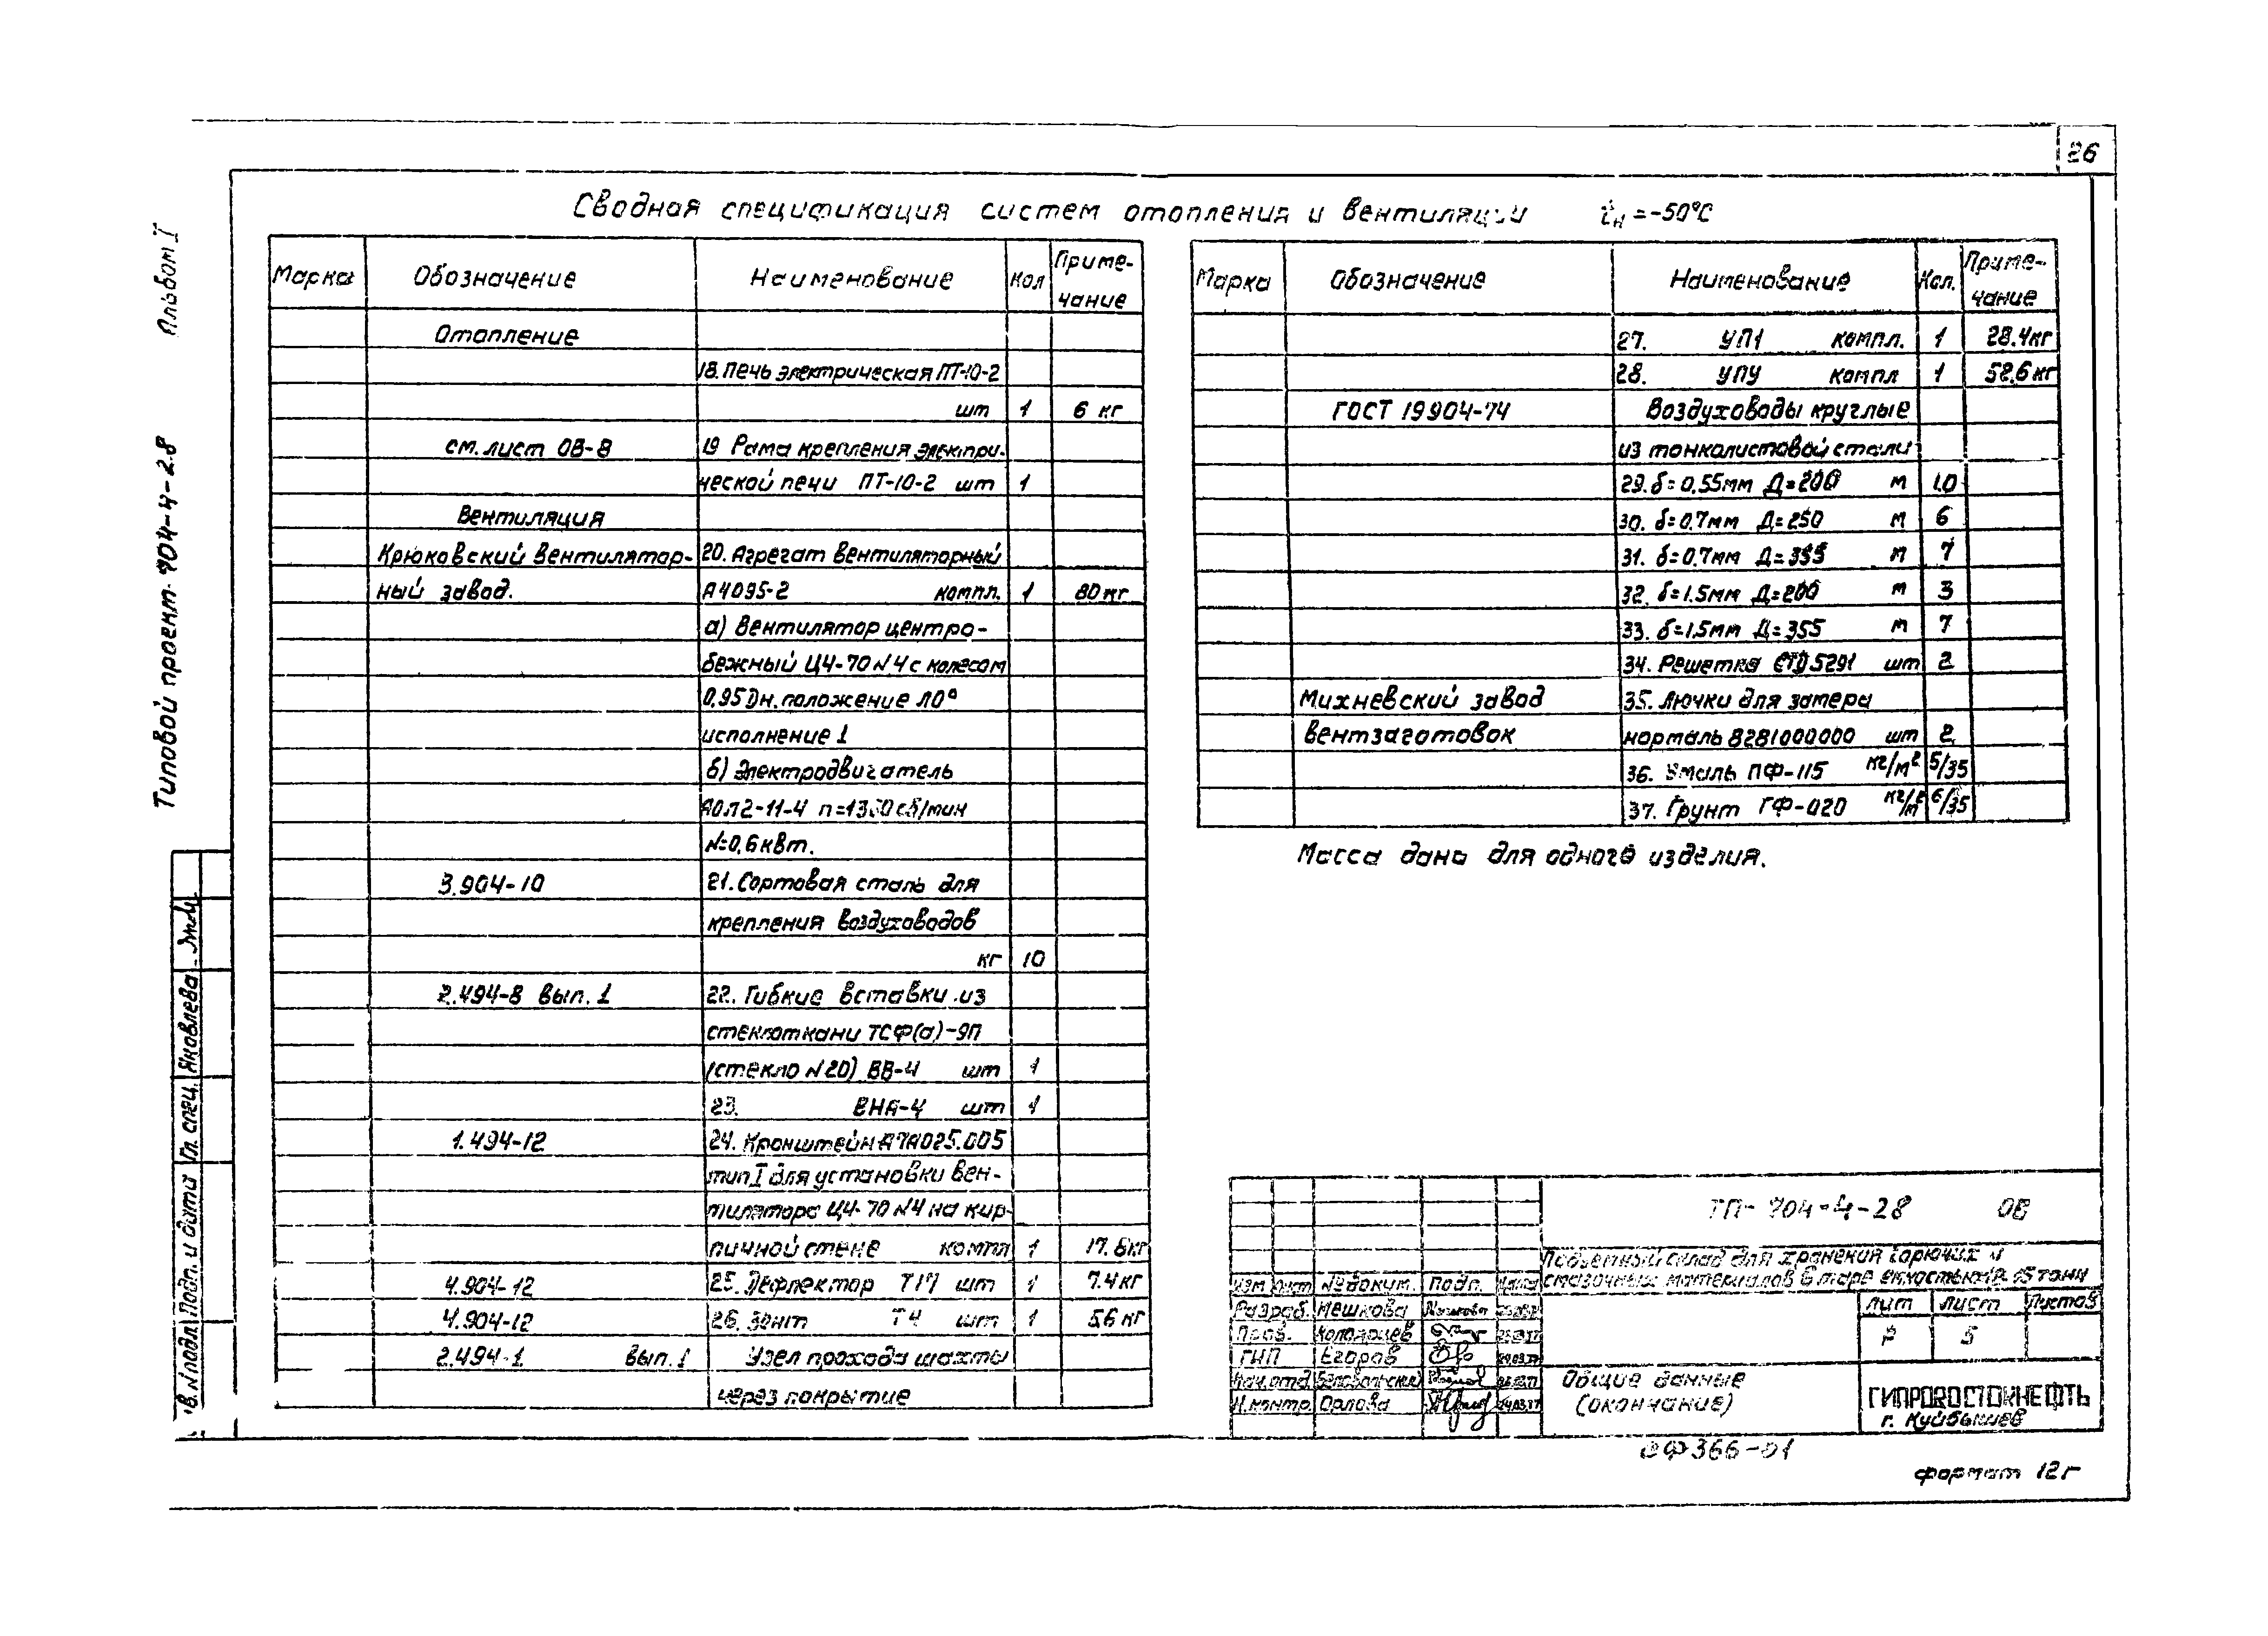 26
Альбом I
Типовой проект 704-4-28
Сводная спецификация систем отопления и вентиляции tн =-50°С
Марка Обозначение Наименование Кол Приме-
чание
Отопление
18. Печь электрическая ПТ-10-2
шт 1 6 кг
см. лист ОВ-8 19 Рама крепления электри-
ческой печи ПТ-10-2 шт 1
Вентиляция
Крюковский Вентилятор- 20. Агрегат вентиляторный
ный завод. А4095-2 компл. 1 80 кг
а) Вентилятор центро-
бежный Ц4-70 N4 с колесом
0,95 Dн. положение Л0°
исполнение 1
б) Электродвигатель
АОЛ2-11-4 n=1350 об/мин
N=0,6 квт.
3.904-10 21. Сортовая сталь для
крепления воздуховодов
кг 10
2.494-8 вып. 1 22. Гибкие вставки из
стеклоткани ТСФ(а)-9п
(стекло N20) ВВ-4 шт 1
23. ВНА-4 шт 1
1.494-12 24. Кронштейн А7А025.005
тип I для установки вен-
тилятора Ц4-70 N4 на кир-
пичной стене компл 1 17.8кг
4.904-12 25. Дефлектор Т17 шт 1 7.4 кг
4.904-12 26. Зонт Т4 шт 1 5.6 кг
2.494-1 вып. 1 Узел прохода шахты
через покрытие
Марка Обозначение Наименование Кол. Приме-
чание
27. УП1 компл. 1 28.4кг
28. УПУ компл 1 52.6 кг
ГОСТ 19904-74 Воздуховоды круглые
из тонколистовой стали
29. δ=0,55мм Д=200 м 1.0
30. δ=0.7мм Д=250 м 6
31. δ=0,7мм Д=355 м 7
32. δ=1.5мм Д=200 м 3
33. δ=1,5мм Д=355 м 7
34. Решетка СТД 5291 шт 2
Михневский завод 35. Лючки для замера
вентзаготовок нормаль 8281000000 шт 2
36. Эмаль ПФ-115 кг/м² 5/35
37. Грунт ГФ-020 кг/м² 6/35
Масса дана для одного изделия.
Гл. спец. Яковлева
Подп. и дата
ТП- 704-4-28 ОВ
Подъемный склад для хранения горючих и
смазочных материалов в таре емкостью 15 тонн
Изм Лист № докум. Подп. Дата
Разраб. Мешкова
Пров. Колодриев
ГИП Егоров
Нач.отд
Н.контр. Орлова
Лит Лист Листов
Р 5
Общие данные
(окончание)
ГИПРОВОСТОКНЕФТЬ
г. Куйбышев
СФ366-01
формат 12г